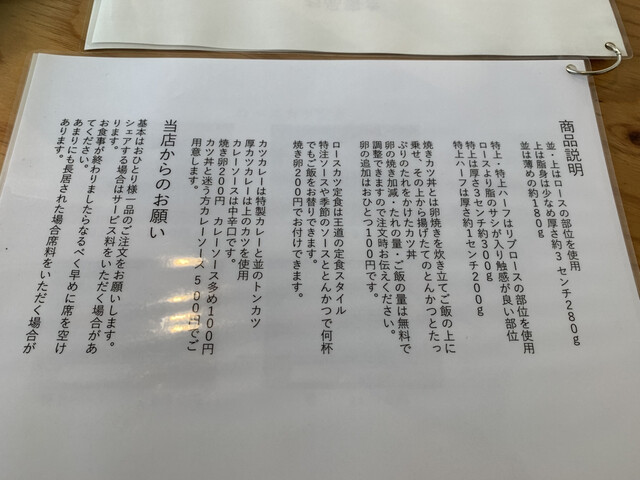 商品説明
並・上はロースの部位を使用
上は脂身は少なめ厚さ約3センチ280g
並は薄めの約180g
特上・特上ハーフはリブロースの部位を使用
ロースより脂のサシが入り触感が良い部位
特上は厚さ3センチ約300g
特上ハーフは厚さ約1センチ200g
焼きカツ丼とは卵焼きを炊き立てご飯の上に
乗せ、その上から揚げたてのとんかつとたっ
ぷりのたれをかけたカツ丼
卵の焼き加減・たれの量・ご飯の量は無料で
調整できますので注文時お伝えください。
卵の追加はおひとつ100円です。
ロースカツ定食は王道の定食スタイル
特注ソースや季節のソースととんかつで何杯
でもご飯をお替りできます。
焼き卵200円でお付けできます。
カツカレーは特製カレーと並のトンカツ
厚カツカレーは上のカツを使用
カレーソースは中辛口です。
焼き卵200円 カレーソース多め100円
カツ丼と迷う方カレーソース500円でご
用意します。
当店からのお願い
基本はおひとり様一品のご注文をお願いします。
シェアする場合はサービス料をいただく場合があ
ります。
お食事が終わりましたらなるべく早めに席を空け
てください。
あまりにも長居された場合席料をいただく場合が
あります。